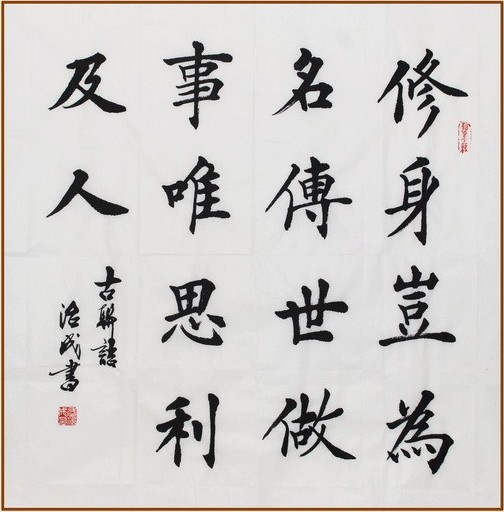 修身豈為
名傳世做
事唯思利
及人
古聯語
治民書